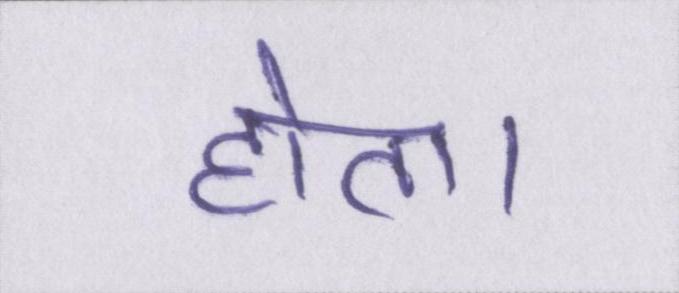 होता।